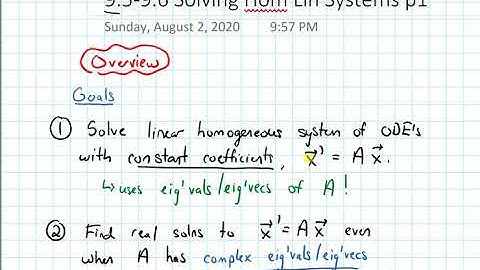 9.5-9.6 Solving Hom Lin Systems p1
Sunday, August 2, 2020 9:57 PM
Overview
Goals
① Solve linear homogeneous system of ODE's
with constant coefficients, x⃗' = A x⃗.
↳ uses eig'vals/eig'vecs of A!
② Find real solns to x⃗' = A x⃗ even
when A has complex eig'vals/eig'vecs